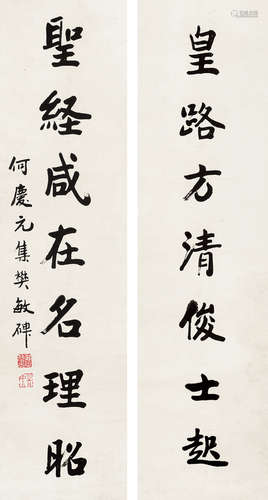 皇路方清俊士起
聖経咸在名理昭
何慶元集樊敏碑